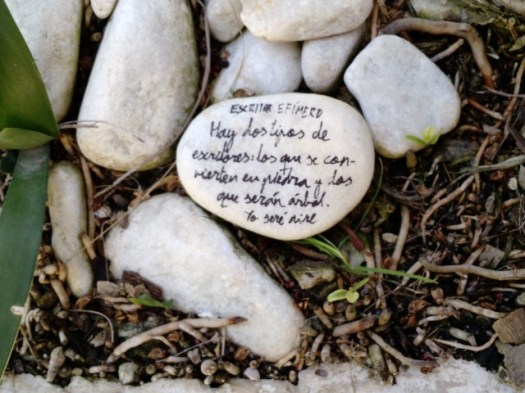 ESCRITOR EFÍMERO
Hay dos tipos de
escritores: los que se con-
vierten en piedra y los
que serán árbol.
Yo seré aire